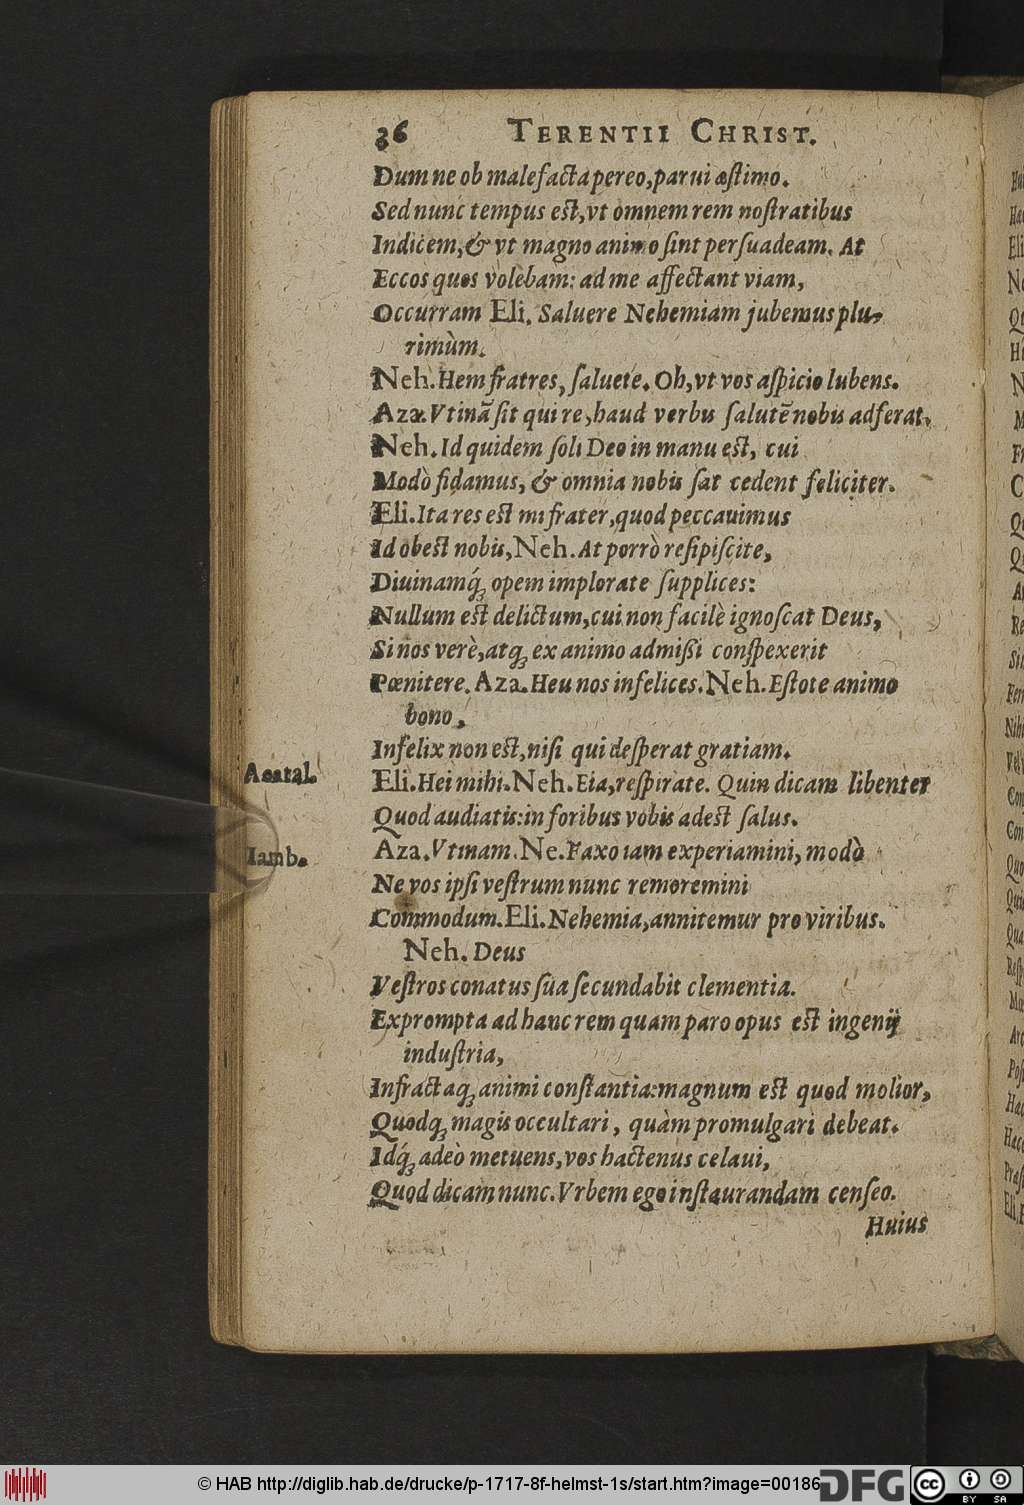 36 TERENTII CHRIST.
Dum ne ob malefacta pereo, parui æſtimo.
Sed nunc tempus eſt, vt omnem rem noſtratibus
Indicem, & vt magno animo ſint perſuadeam. At
Eccos quos volebam: ad me affectant viam,
Occurram Eli. Saluere Nehemiam jubemus plu-
rimùm.
Neh. Hem fratres, ſaluete. Oh, vt vos aſpicio lubens.
Aza. Vtinã ſit qui re, haud verbis ſalutẽ nobis adferat.
Neh. Id quidem ſoli Deo in manu eſt, cui
Modò fidamus, & omnia nobis ſat cedent feliciter.
Eli. Ita res eſt mi frater, quod peccauimus
Id obeſt nobis, Neh. At porrò reſipiſcite,
Diuinamq́; opem implorate ſupplices:
Nullum eſt delictum, cui non facilè ignoſcat Deus,
Si nos verè, atq; ex animo admiſſi conſpexerit
Pœnitere. Aza. Heu nos infelices. Neh. Eſtote animo
bono,
Infelix non eſt, niſi qui deſperat gratiam.
Acatal. Eli. Hei mihi. Neh. Eia, reſpirate. Quin dicam libenter
Quod audiatis: in foribus vobis adeſt ſalus.
Iamb. Aza. Vtinam. Ne. Faxo iam experiamini, modò
Ne vos ipſi veſtrum nunc remoremini
Commodum. Eli. Nehemia, annitemur pro viribus.
Neh. Deus
Veſtros conatus ſua ſecundabit clementia.
Exprompta ad hanc rem quam paro opus eſt ingenij
induſtria,
Infractaq; animi conſtantia: magnum eſt quod molior,
Quodq; magis occultari, quàm promulgari debeat.
Idq́; adeò metuens, vos hactenus celaui,
Quod dicam nunc. Vrbem ego inſtaurandam cenſeo.
Huius
© HAB http://diglib.hab.de/drucke/p-1717-8f-helmst-1s/start.htm?image=00186
DFG
cc BY SA